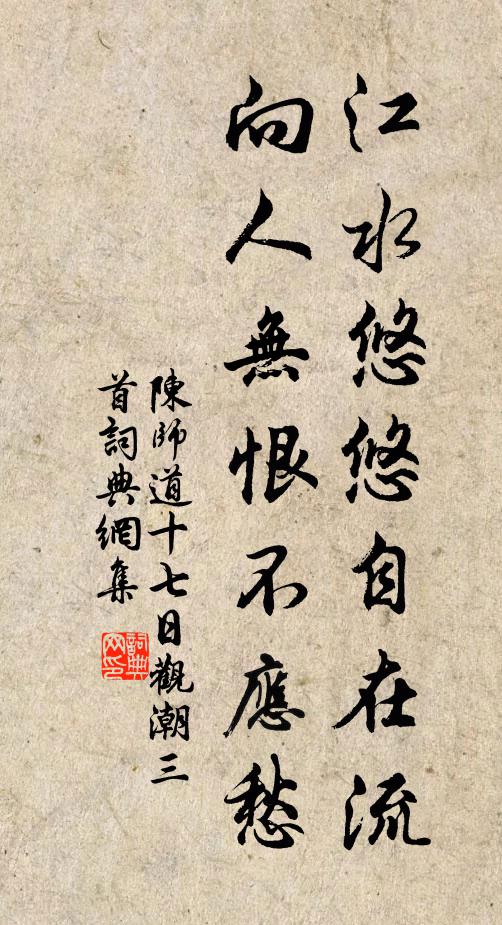 江水悠悠自在流
向人無恨不應愁
陳師道十七日觀潮三
首詞典網集
詞典
网印